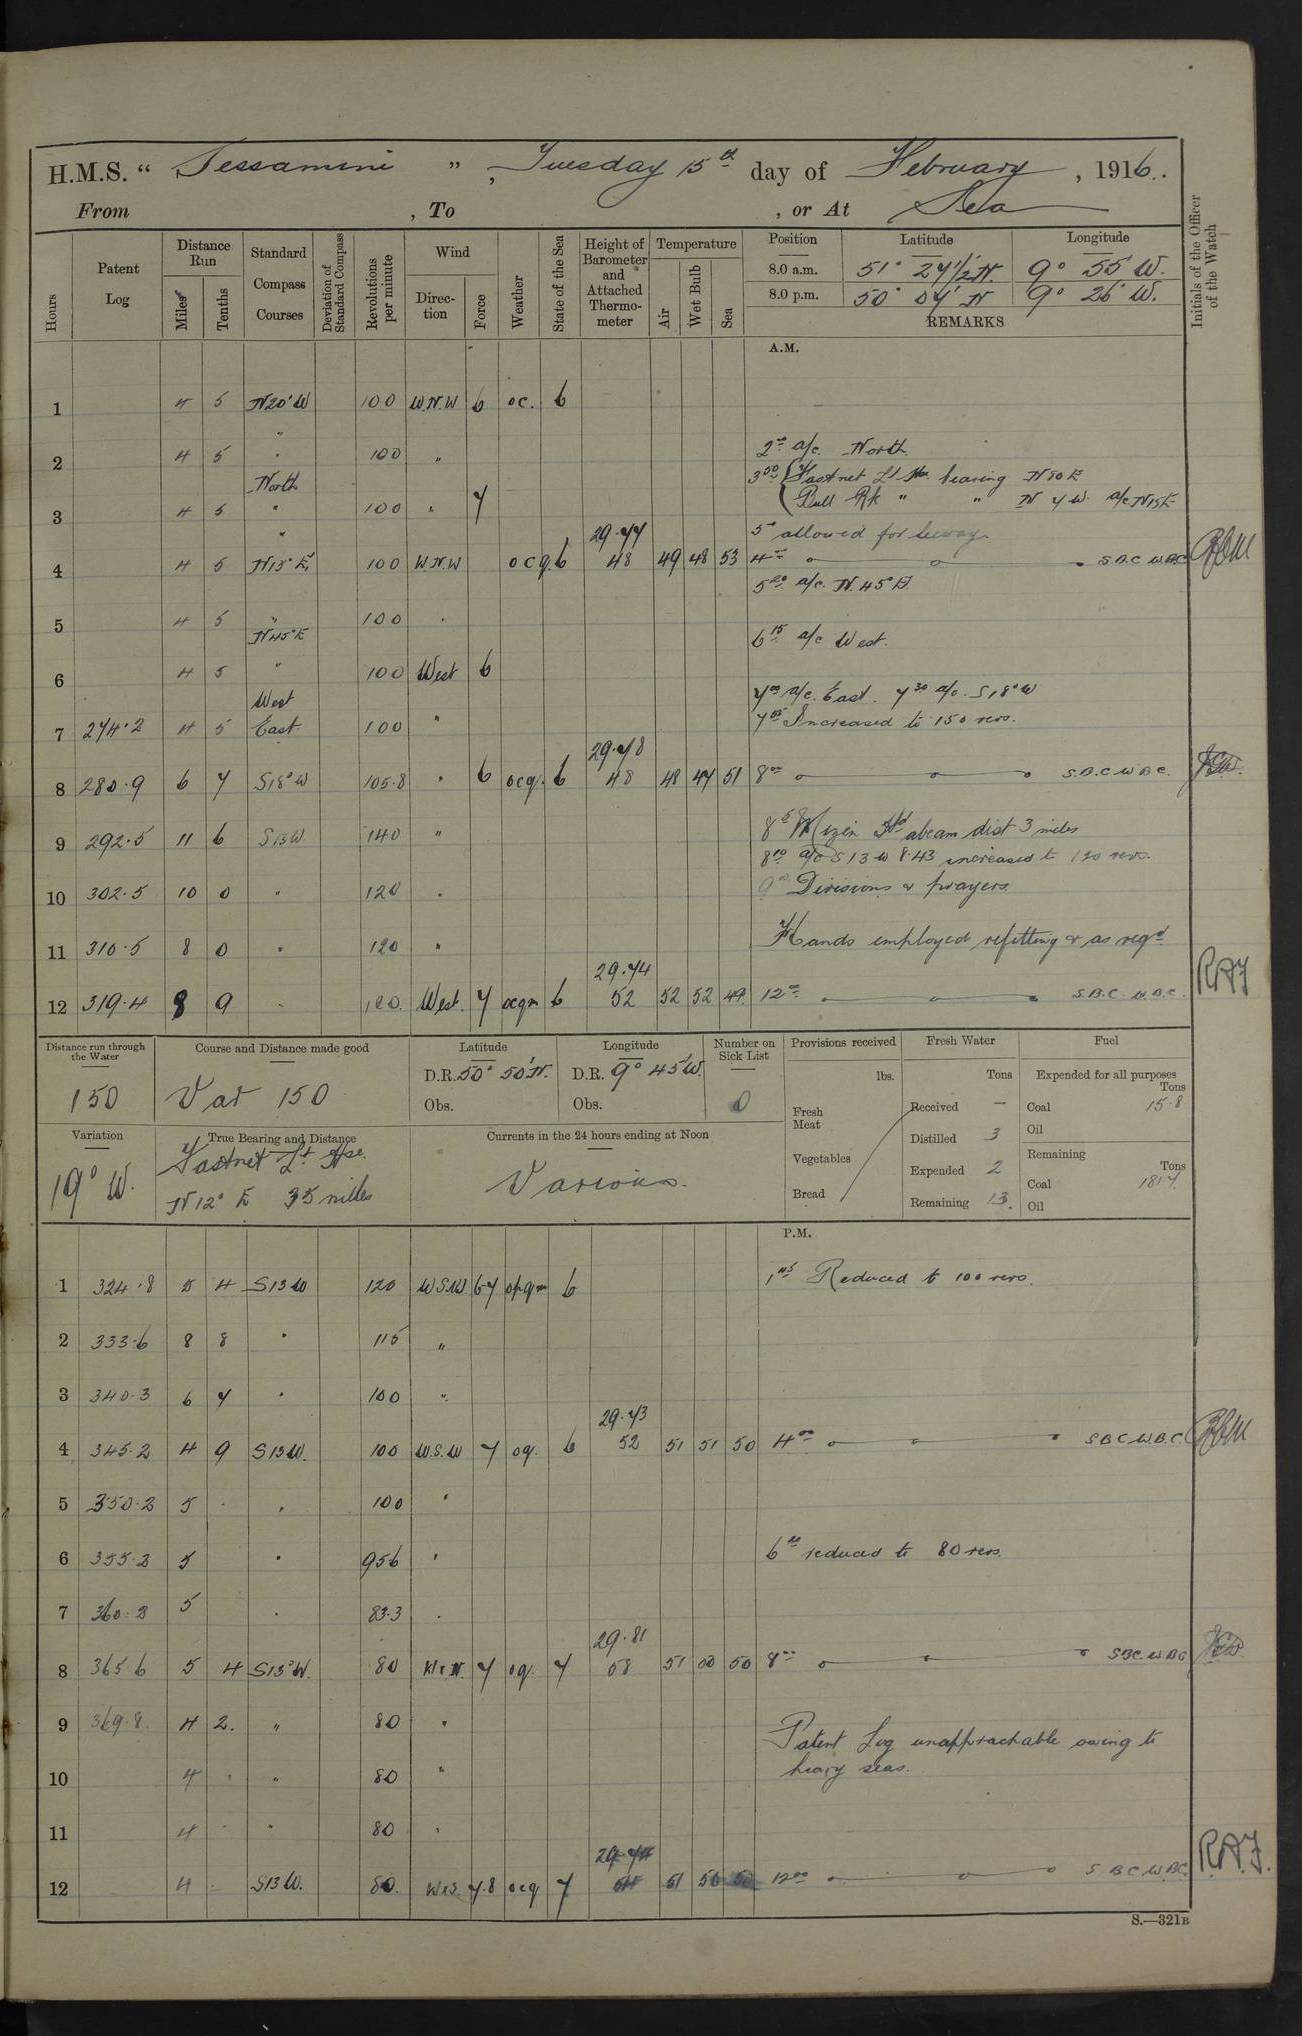 H.M.S. " Jessamine ", Tuesday 15th day of February, 1916.
From , To , or At Sea
Hours Patent Log Distance Run Miles Tenths Standard Compass Courses Deviation of Standard Compass Revolutions per minute Wind Direction Force Weather State of the Sea Height of Barometer and Attached Thermometer Temperature Air Wet Bulb Sea Position Latitude Longitude Initials of the Officer of the Watch
8.0 a.m. 51° 24 1/2' N. 9° 55' W.
8.0 p.m. 50° 04' N 9° 26' W.
REMARKS
A.M.
1 4 5 N20°W 100 W.N.W 6 oc. 6
"
2 4 5 " 100 " 2 00 a/c. North.
North 3 50 { Fastnet Lt Hse bearing N80E
3 4 5 " 100 " 7 Bull Rk " " N 7 W. a/c N15E
" 29.77 5° allowed for leeway.
4 4 5 N15°E 100 W.N.W ocq. 6 48 49 48 53 4 00 S.B.C W.B.C
5 20 a/c. N.45°E
5 4 5 " 100 "
N45°E 6 15 a/c West.
6 4 5 " 100 West 6
West 7 00 a/c. East. 7 30 a/c. S18°W
7 274.2 4 5 East. 100 " 7 55 Increased to 150 revs.
29.78
8 280.9 6 7 S18°W 105.8 " 6 ocq. 6 48 48 47 51 8 00 S.B.C W.B.C.
9 292.5 11 6 S13W 140 " 8 5 Mizen Hd abeam dist 3 miles
8 10 a/c S13W 8.43 increased to 120 revs.
10 302.5 10 0 " 120 " 9 00 Divisions & prayers
11 310.5 8 0 " 120 " Hands employed refitting & as reqd
29.74
12 319.4 8 9 " 120. West. 7 ocqm 6 52 52 52 49 12 00 S.B.C. W.B.C. RAJ
Distance run through the Water Course and Distance made good Latitude Longitude Number on Sick List Provisions received Fresh Water Fuel
150 Var 150 D.R. 50° 50'N. D.R. 9° 45'W. 0 lbs. Tons Expended for all purposes Tons
Obs. Obs. Fresh Meat Received — Coal 15.8
Variation True Bearing and Distance Currents in the 24 hours ending at Noon Distilled 3 Oil
19° W. Fastnet Lt Hse. Various. Vegetables Expended 2 Remaining Tons
N12° E 35 miles Bread Remaining 13. Coal 181.7.
Oil
P.M.
1 324.8 5 4 S13W 120 W.S.W 6 7 opqm 6 1 45 Reduced to 100 revs.
2 333.6 8 8 " 115 "
3 340.3 6 7 " 100 "
29.73
4 345.2 4 9 S13W. 100 W.S.W 7 oq. 6 52 51 51 50 4 00 S.B.C W.B.C.
5 350.2 5 . " 100 "
6 355.2 5 " 95.6 " 6 00 reduced to 80 revs.
7 360.2 5 " 83.3 "
29.81
8 365.6 5 4 S13°W. 80 WxN. 7 oq. 7 58 51 50 50 8 00 S.B.C. W.B.C
9 369.8. 4 2. " 80 " Patent Log unapprachable owing to
10 4 " 80 " heavy seas.
11 4 " 80 "
29.74
12 4 S13W. 80. WxS. 7.8 ocq 7 54 51 50 50 12 00 S.B.C W.B.C. R.A.J.
S.—321B